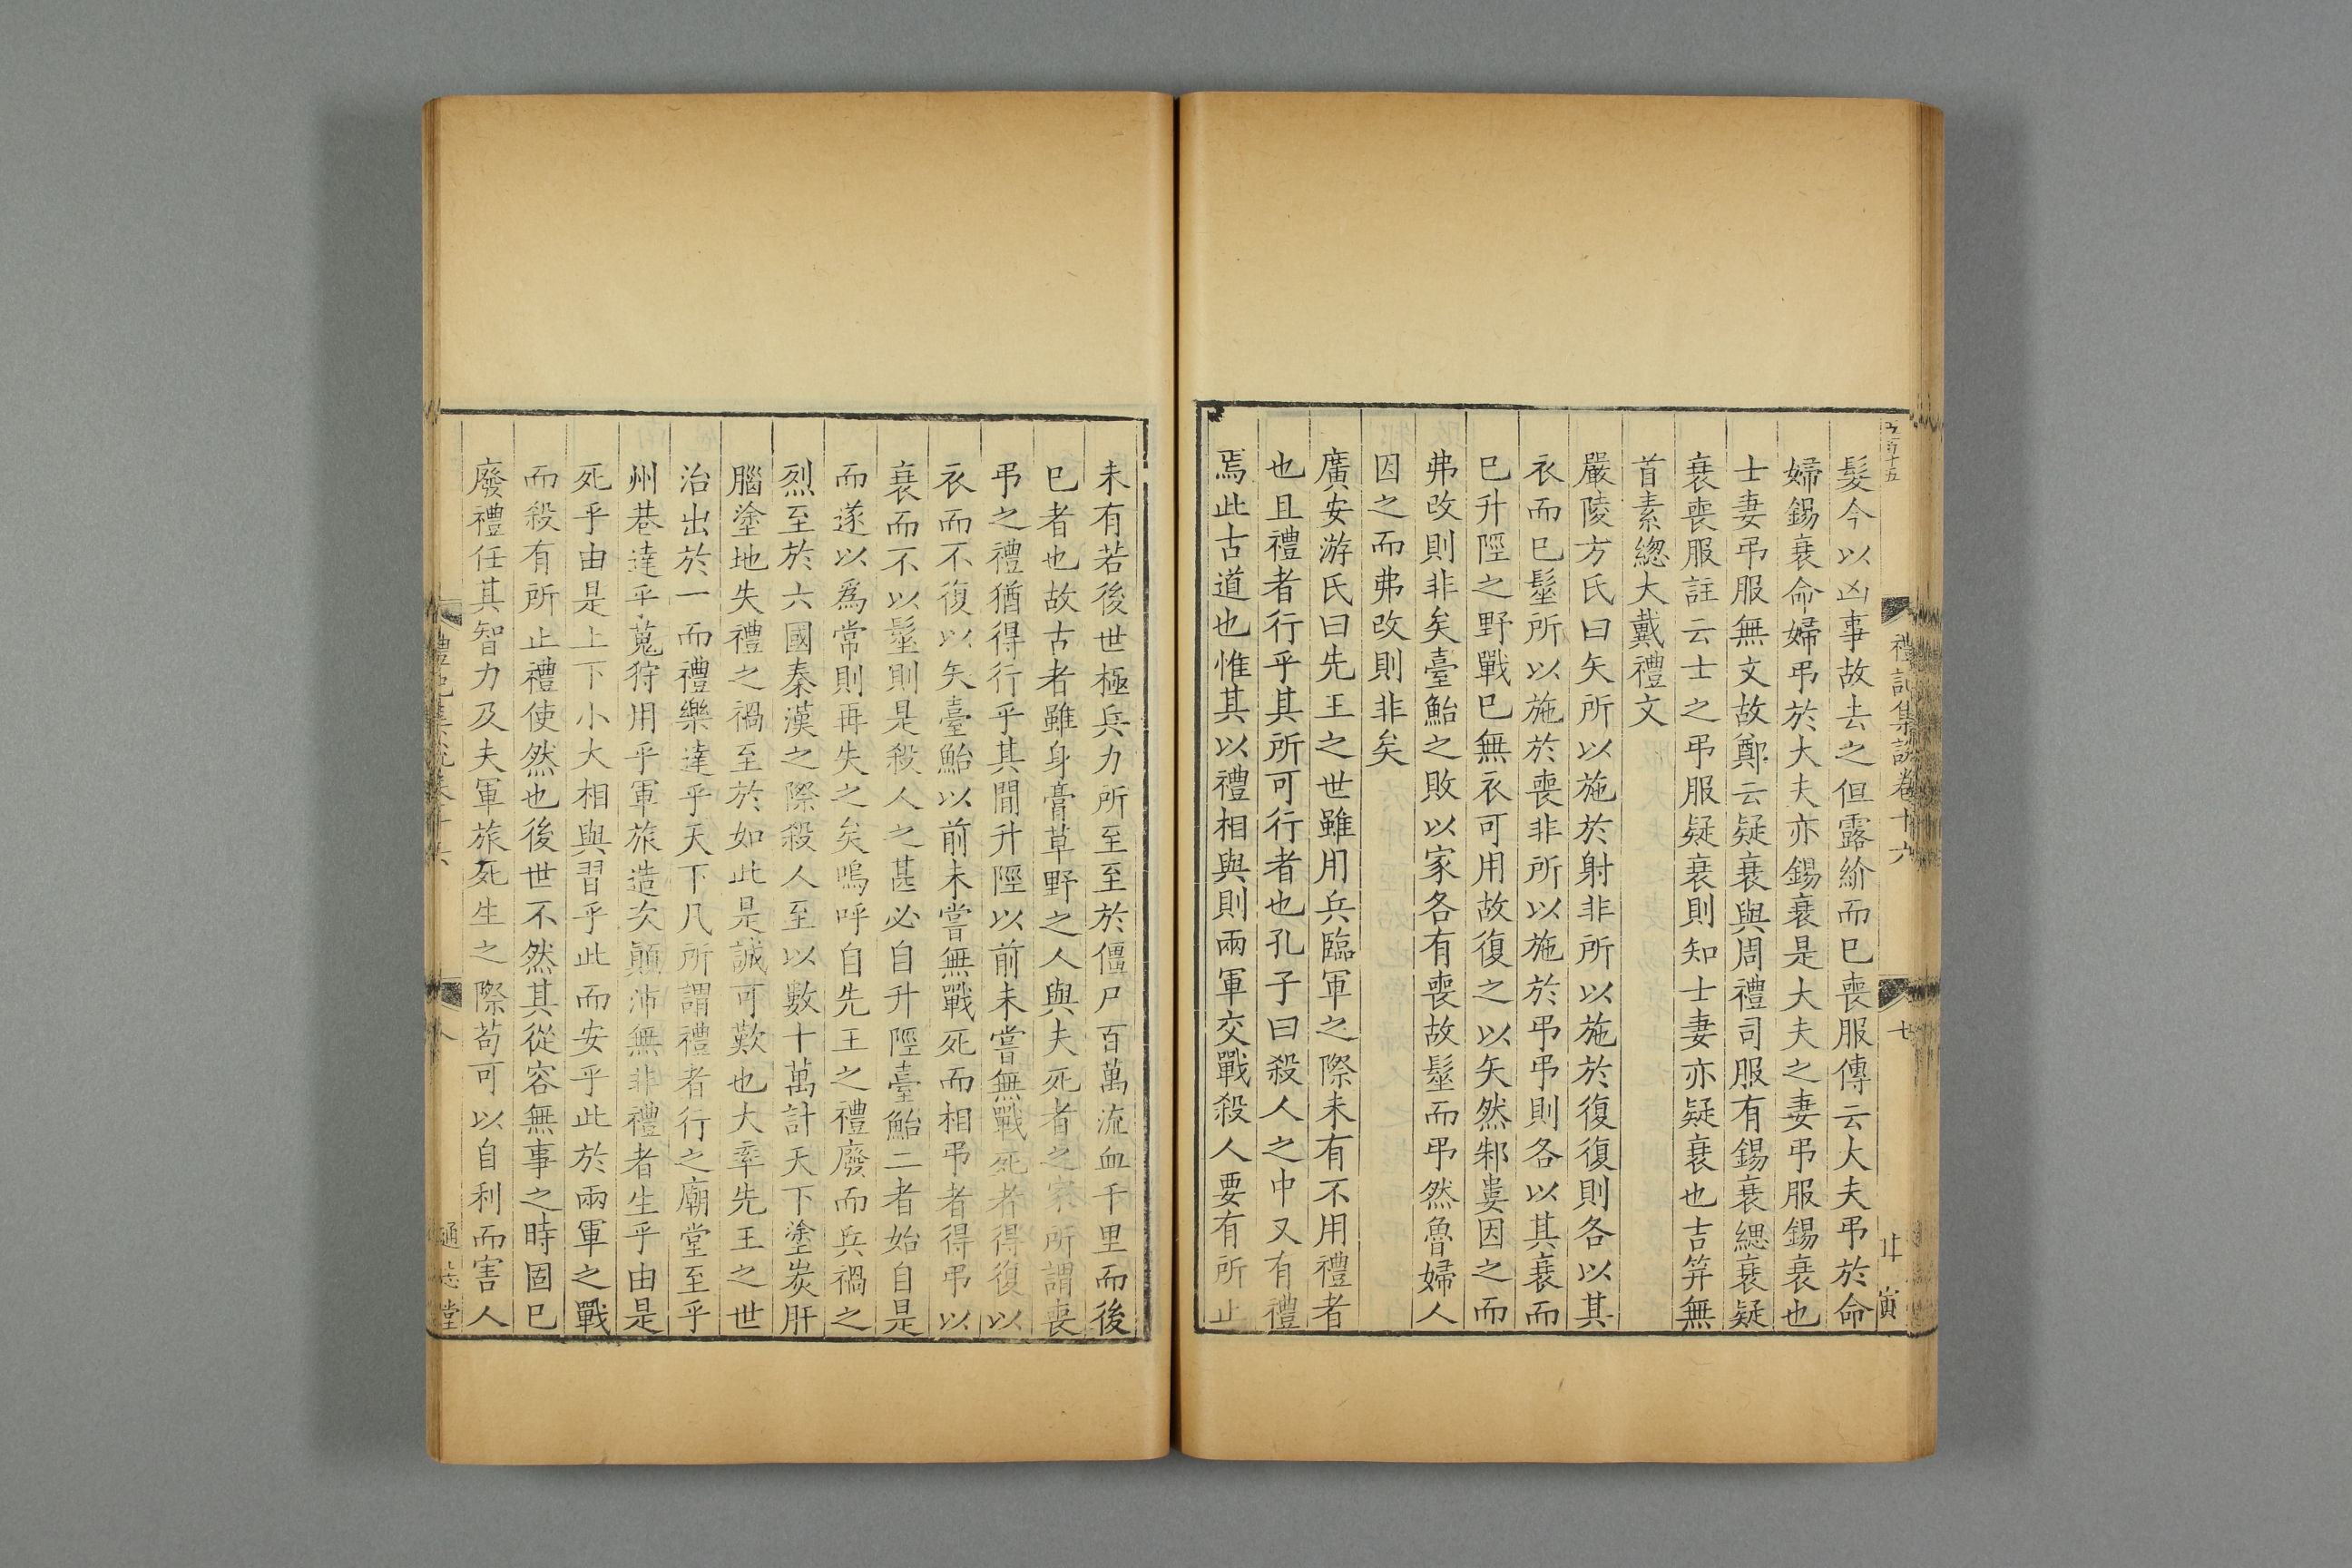 髮今以凶事故去之但露紒而巳喪服傳云大夫弔於命
婦錫衰命婦弔於大夫亦錫衰是大夫之妻弔服錫衰也
士妻弔服無文故鄭云疑衰與周禮司服有錫衰緦衰疑
衰喪服註云士之弔服疑衰則知士妻亦疑衰也吉笄無
首素緫大戴禮文
嚴陵方氏曰矢所以施於射非所以施於復復則各以其
衣而巳髽所以施於喪非所以施於弔弔則各以其衰而
巳升陘之野戰巳無衣可用故復之以矢然邾婁因之而
弗改則非矣臺鮐之敗以家各有喪故髽而弔然魯婦人
因之而弗改則非矣
廣安游氏曰先王之世雖用兵臨軍之際未有不用禮者
也且禮者行乎其所可行者也孔子曰殺人之中又有禮
焉此古道也惟其以禮相與則兩軍交戰殺人要有所止
未有若後世極兵力所至至於僵尸百萬流血千里而後
巳者也故古者雖身膏草野之人與夫死者之家所謂喪
弔之禮猶得行乎其閒升陘以前未嘗無戰死者得復以
衣而不復以矢臺鮐以前未嘗無戰死而相弔者得弔以
衰而不以髽則是殺人之甚必自升陘臺鮐二者始自是
而遂以爲常則再失之矣嗚呼自先王之禮廢而兵禍之
烈至於六國秦漢之際殺人至以數十萬計天下塗炭肝
腦塗地失禮之禍至於如此是誠可歎也大率先王之世
治出於一而禮樂達乎天下凡所謂禮者行之廟堂至乎
州巷達乎蒐狩用乎軍旅造次顚沛無非禮者生乎由是
死乎由是上下小大相與習乎此而安乎此於兩軍之戰
而殺有所止禮使然也後世不然其從容無事之時固巳
廢禮任其智力及夫軍旅死生之際苟可以自利而害人
禮記集說卷十六
七
通志堂